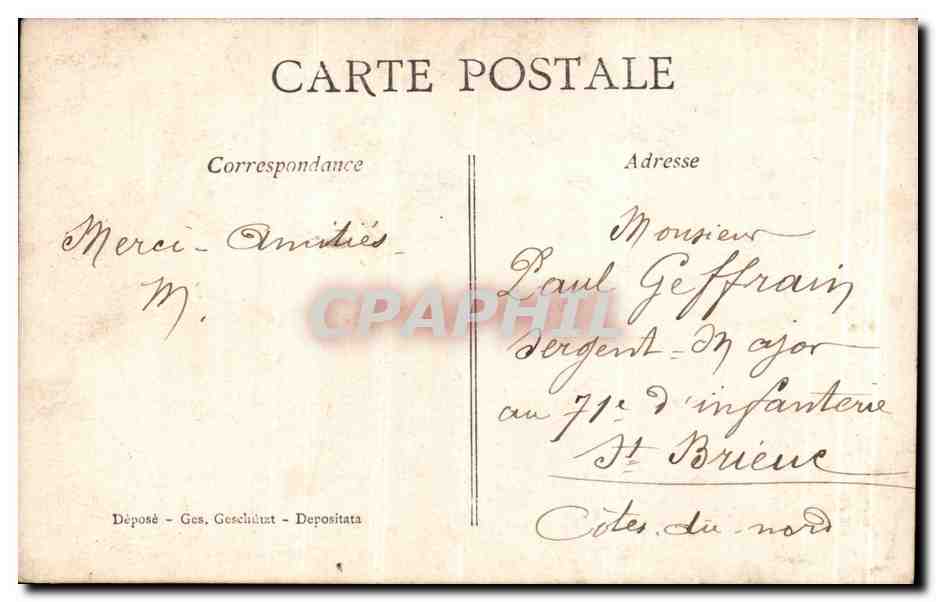 CARTE POSTALE
Correspondance
Merci - Amitiés
M.
Adresse
Monsieur
Paul Geffrain
Sergent-Major
au 71e d'infanterie
St Brieuc
Côtes-du-nord
Déposé - Ges. Geschützt - Depositata
CPAPHIL